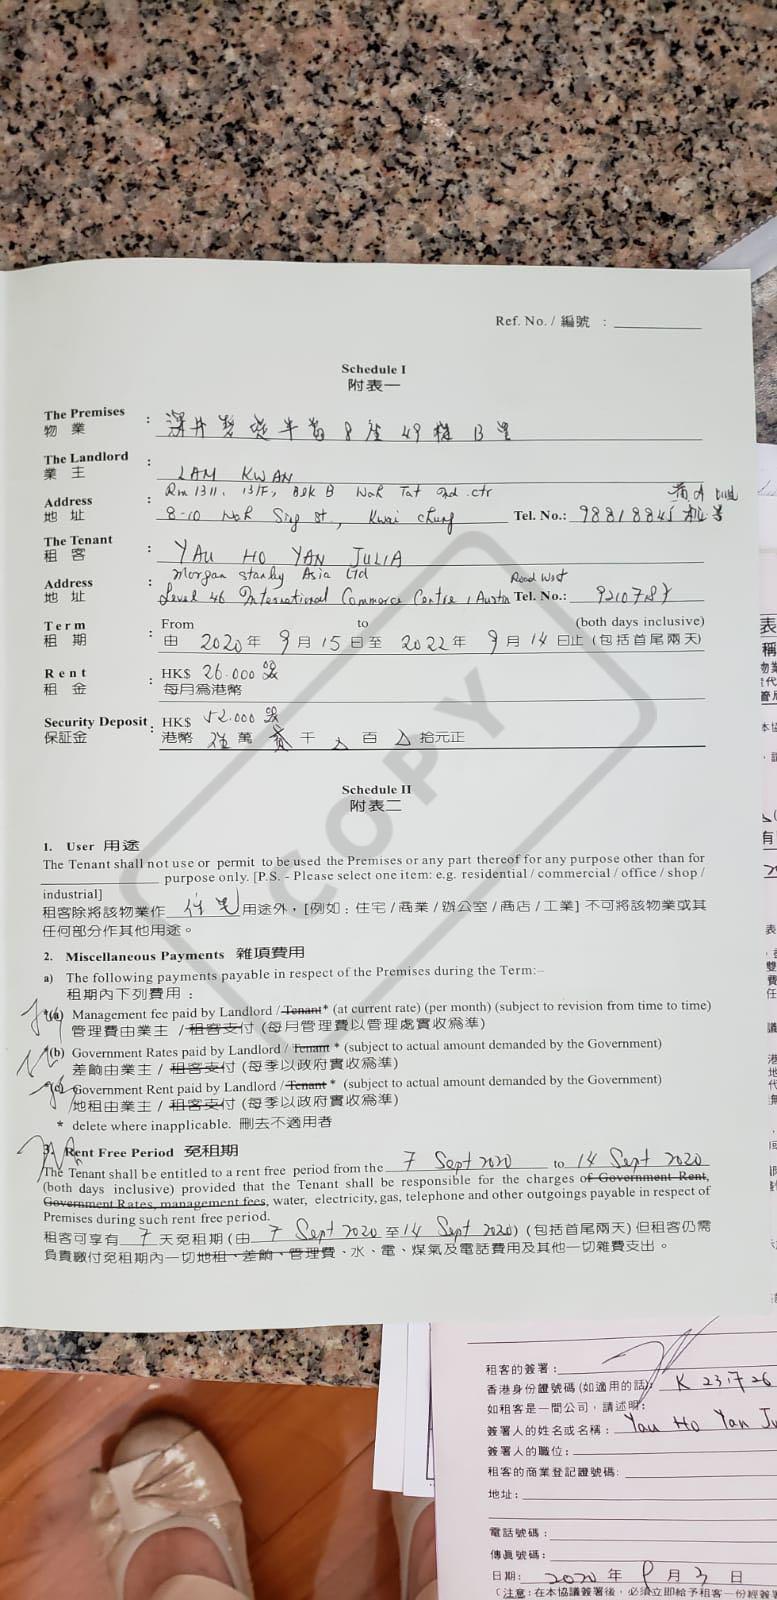 Ref. No. / 編號 :
Schedule I
附表一
The Premises
物 業 : 深井 半 8座 49樓 B室
The Landlord
業 主 : LAM KWAN
Address
地 址 : Rm 1311, 13/F, Blk B Wah Tat Ind. ctr
8-10 Wah Sing St., Kwai Chung Tel. No.: 98818845
The Tenant
租 客 : YAU HO YAN JULIA
Address
地 址 : Morgan Stanley Asia Ltd
Level 46 International Commerce Centre, 1 Austin Road West Tel. No.:
Term From to (both days inclusive)
租 期 : 由 2020 年 9 月 15 日至 2022 年 9 月 14 日止 (包括首尾兩天)
Rent : HK$ 26,000
租 金 每月為港幣
Security Deposit : HK$ 52,000
保証金 港幣 伍 萬 貳 千 百 拾元正
COPY
Schedule II
附表二
1. User 用途
The Tenant shall not use or permit to be used the Premises or any part thereof for any purpose other than for
purpose only. [P.S. - Please select one item: e.g. residential / commercial / office / shop /
industrial]
租客除將該物業作 住宅 用途外，[例如 : 住宅 / 商業 / 辦公室 / 商店 / 工業] 不可將該物業或其
任何部分作其他用途。
2. Miscellaneous Payments 雜項費用
a) The following payments payable in respect of the Premises during the Term:–
租期內下列費用 :
*(a) Management fee paid by Landlord / Tenant* (at current rate) (per month) (subject to revision from time to time)
管理費由業主 / 租客支付 (每月管理費以管理處實收為準)
*(b) Government Rates paid by Landlord / Tenant * (subject to actual amount demanded by the Government)
差餉由業主 / 租客支付 (每季以政府實收為準)
Government Rent paid by Landlord / Tenant * (subject to actual amount demanded by the Government)
地租由業主 / 租客支付 (每季以政府實收為準)
* delete where inapplicable. 刪去不適用者
3. Rent Free Period 免租期
The Tenant shall be entitled to a rent free period from the 7 Sept 2020 to 14 Sept 2020
(both days inclusive) provided that the Tenant shall be responsible for the charges of Government Rent,
Government Rates, management fees, water, electricity, gas, telephone and other outgoings payable in respect of
Premises during such rent free period.
租客可享有 7 天免租期 (由 7 Sept 2020 至 14 Sept 2020) (包括首尾兩天) 但租客仍需
負責繳付免租期內一切地租、差餉、管理費、水、電、煤氣及電話費用及其他一切雜費支出。
租客的簽署 :
香港身份證號碼 (如適用的話):
如租客是一間公司，請述明:
簽署人的姓名或名稱 : Yau Ho Yan Ju
簽署人的職位:
租客的商業登記證號碼:
地址 :
電話號碼 :
傳真號碼:
日期: 2020 年 9 月 3 日
(注意: 在本協議簽署後，必須立即給予租客一份經簽署